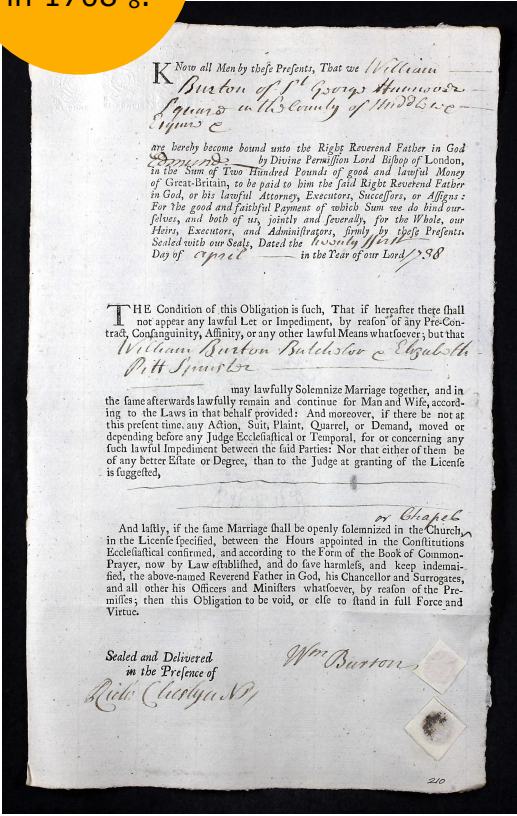 in 1768 8.
KNow all Men by these Presents, That we William
Burton of St George Hannover
Square in the County of Middlesex
Esquire &
are hereby become bound unto the Right Reverend Father in God
Edmund by Divine Permission Lord Bishop of London,
in the Sum of Two Hundred Pounds of good and lawful Money
of Great-Britain, to be paid to him the said Right Reverend Father
in God, or his lawful Attorney, Executors, Successors, or Assigns:
For the good and faithful Payment of which Sum we do bind our-
selves, and both of us, jointly and severally, for the Whole, our
Heirs, Executors, and Administrators, firmly by these Presents.
Sealed with our Seals, Dated the twenty first
Day of april in the Year of our Lord 1738
THE Condition of this Obligation is such, That if hereafter there shall
not appear any lawful Let or Impediment, by reason of any Pre-Con-
tract, Consanguinity, Affinity, or any other lawful Means whatsoever; but that
William Burton Batchelor & Elizabeth
Pitt Spinster
may lawfully Solemnize Marriage together, and in
the same afterwards lawfully remain and continue for Man and Wife, accord-
ing to the Laws in that behalf provided: And moreover, if there be not at
this present time, any Action, Suit, Plaint, Quarrel, or Demand, moved or
depending before any Judge Ecclesiastical or Temporal, for or concerning any
such lawful Impediment between the said Parties: Nor that either of them be
of any better Estate or Degree, than to the Judge at granting of the License
is suggested,
or Chapel
And lastly, if the same Marriage shall be openly solemnized in the Church,
in the License specified, between the Hours appointed in the Constitutions
Ecclesiastical confirmed, and according to the Form of the Book of Common-
Prayer, now by Law established, and do save harmless, and keep indemni-
fied, the above-named Reverend Father in God, his Chancellor and Surrogates,
and all other his Officers and Ministers whatsoever, by reason of the Pre-
misses; then this Obligation to be void, or else to stand in full Force and
Virtue.
Sealed and Delivered
in the Presence of
Wm Burton
210